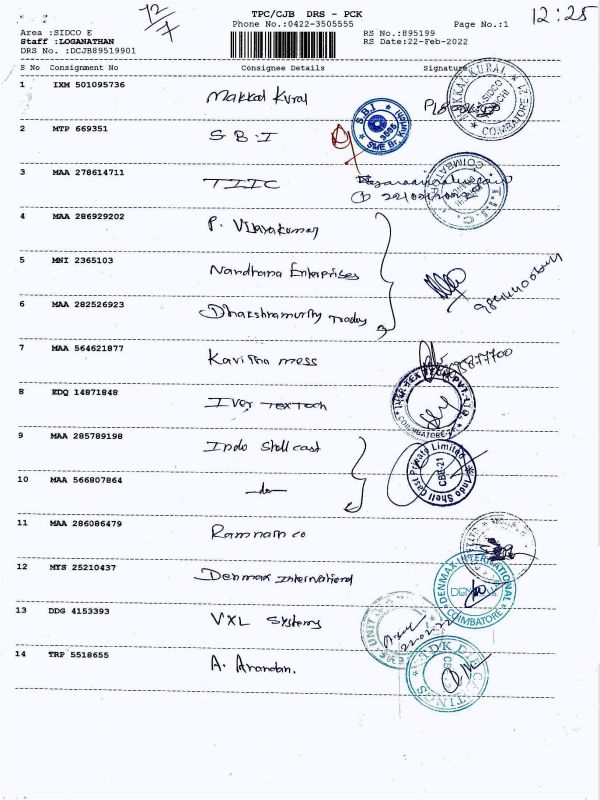 12/7
TPC/CJB DRS - PCK
12:25
Area :SIDCO E
Phone No.:0422-3505555
Page No.:1
Staff :LOGANATHAN
RS No.:895199
DRS No. :DCJB89519901
RS Date:22-Feb-2022
S No Consignment No Consignee Details Signature
1 IXM 501095736 Makkal Kural
MAKKAL KURAL
SIDCO
COIMBATORE
2 MTP 669351 S.B.I
S.B.I
SME Br.
3 MAA 278614711 TIIC
COIMBATORE
4 MAA 286929202 P. Vijayakumar
5 MNI 2365103 Nandhana Enterprises
6 MAA 282526923 Dhakshnamurthy Traders
7 MAA 564621877 Kavitha mess
8 EDQ 14871848 Iver Tex Tech
COIMBATORE
9 MAA 285789198 Indo Shell cast
Indo Shell Cast Private Limited
CBE-21
10 MAA 566807864 -do-
11 MAA 286086479 Ramnam co
12 MYS 25210437 Denmax International
DENMAX INTERNATIONAL
COIMBATORE
13 DDG 4153393 VXL Systems
UNIT
14 TRP 5518655 A. Anandan.